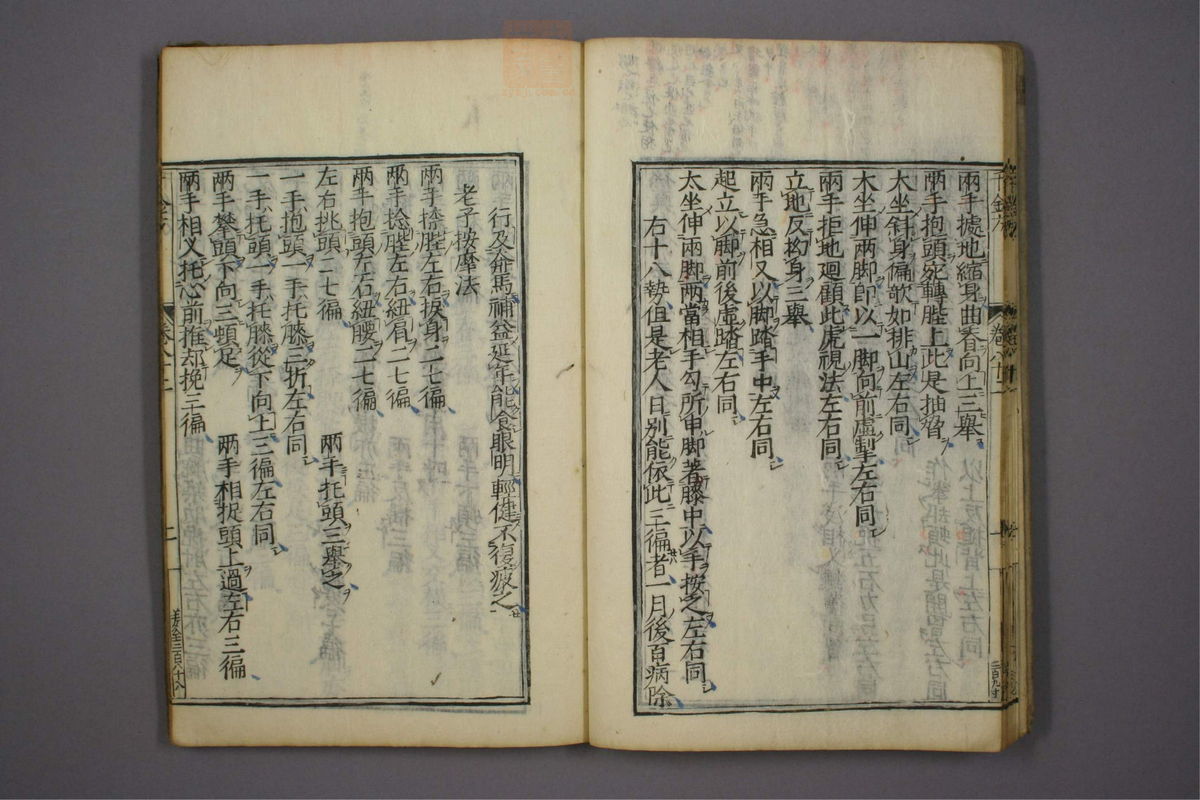 兩手據地縮身曲脊向上三舉
兩手抱頭宛轉䏶上此是抽脅
大坐斜身偏欹如排山左右同
大坐伸兩脚卽以一脚向前虛掣左右同
兩手拒地廻顧此虎視法左右同
立地反拗身三舉
兩手急相叉以脚踏手中左右同
起立以脚前後虛踏左右同
大坐伸兩脚兩當相手勾所申脚著膝中以手按之左右同
右十八勢但是老人日別能依此三徧者一月後百病除
行及奔馬補益延年能食眼明輕健不復疲乏
老子按摩法
兩手捺䏶左右捩身二七徧
兩手捻䏶左右紐肩二七徧
兩手抱頭左右紐腰二七徧
左右挑頭二七徧
兩手托頭三舉之
一手抱頭一手托膝三折左右同
一手托頭一手托膝從下向上三徧左右同
兩手攀頭下向三頓足
兩手相捉頭上過左右三徧
兩手相叉托心前推却挽三徧